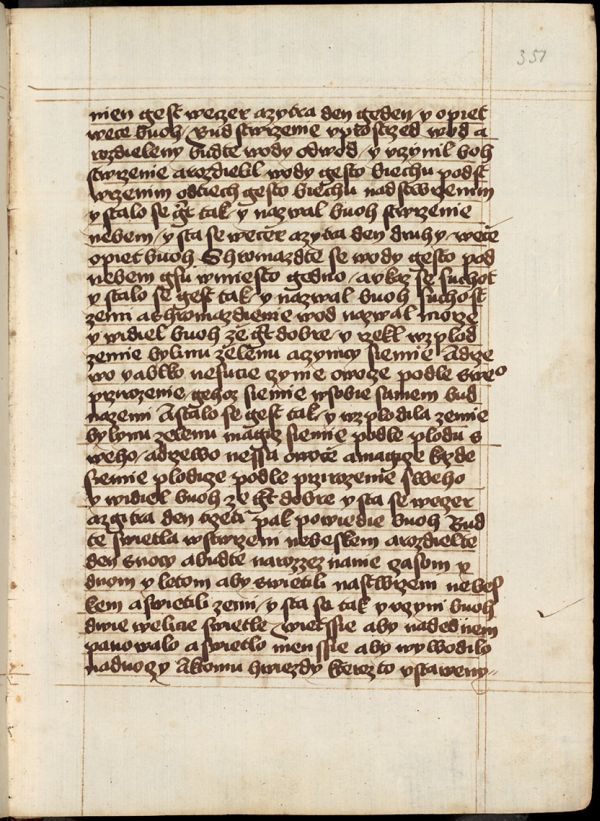 351
nien gest weczer azytra den geden / y opiet
wece buoh / Bud stwrzenie vprostrzed wod a
rozdieleny budte wody odwod / y vczynil boh
stwrzenie a rozdielil wody gesto biechu podst
wrzenim odtiech gesto biechu nadstwrzenim
y stalo se gt tak / y nazwal buoh stwrzenie
nebem / y sta se wecer azytra den druhy / wece
opiet buoh Shromazdte se wody gesto pod
nebem gsu wmiesto gedno / avkaz se suchost
y stalo se gest tak / y nazwal buoh suchost
zemi a shromazdienie wod nazwal morze
y widiel buoh ze gt dobre / y rzekl wzplod
zemie bylinu zelenu a czynicy siemie Adrze
wo yablko nesucie czynie owocze podle sweo
przirozenie / gehoz siemie wsobie samem bud
nazemi A stalo se gest tak / y wzplodila zemie
bylynu zelenu magicz siemie podle plodu s
weho / adrzewo nessu owoce a magicze kazde
siemie plodicze podle przirozenie sweho
y widiel buoh ze gt dobre y sta se weczer
azgitra den trzeti pak powiedie buoh Bud
te swietla wstwrzeni nebeskem a rozdielte
den snocy a budte narozeznanie czasom y
dnom y letom aby swietili nastwrzeni nebes
kem a swietili zemi / y sta se tak / y vczyni buoh
dwie welicie swietle / wietssie aby nadednem
panowalo a swietlo menssie aby wywodilo
nadnoczy Aktomu hwiezdy kterezto vstaweny